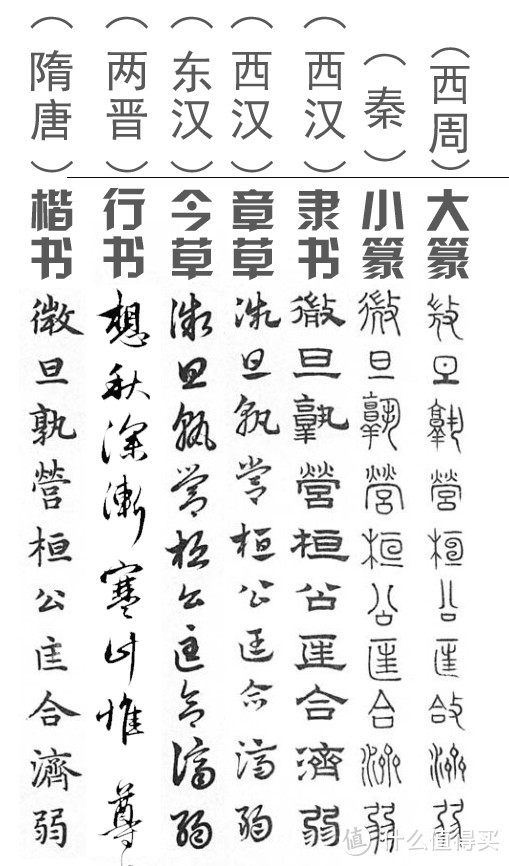 （西周）
大篆
微旦孰營桓公匡合濟弱
（秦）
小篆
微旦孰營桓公匡合濟弱
（西汉）
隶书
微旦孰營桓公匡合濟弱
（西汉）
章草
微旦孰營桓公匡合濟弱
（东汉）
今草
微旦孰營桓公匡合濟弱
（两晋）
行书
想秋深漸寒此惟尊
（隋唐）
楷书
微旦孰營桓公匡合濟弱
值 什么值得买